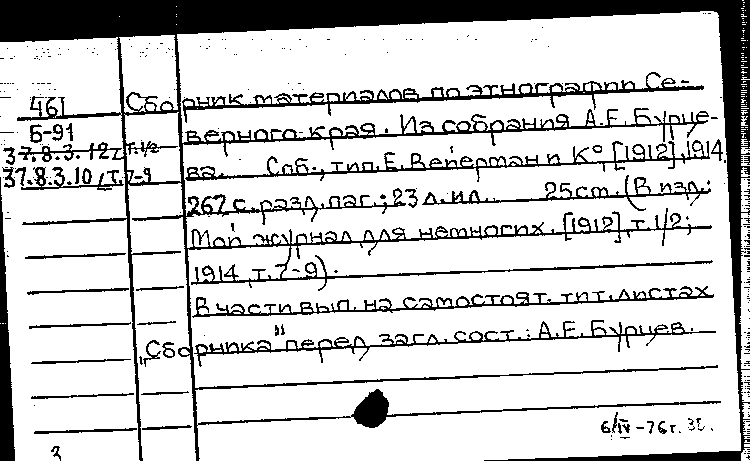 461 Сборник материалов по этнографии Се-
Б-91 верного края. Из собрания А.Е. Бурце-
37.8.3.12/т.1/2 ва. Спб., тип. Е. Вейерман и К°, [1912], 1914
37.8.3.10/т.7-9 267 с. разд. паг.; 23 л. ил. 25 cm. (В изд.:
Мой журнал для немногих. [1912], т. 1/2;
1914, т. 7-9).
В части вып. на самостоят. тит. листах
„Сборника" перед загл. сост.: А.Е. Бурцев.
6/IV -76г.
3